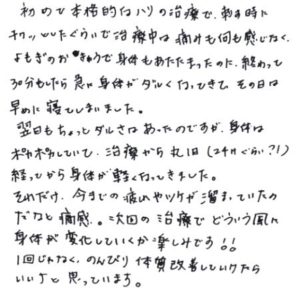 初めて本格的なハリの治療で、刺す時に
チクッとしたぐらいで治療中は痛みも何も感じなく、
よもぎのお きゅうで身体もあたたまったのに、終わって
30分もしたら急に身体がダルくなってきて、その日は
早めに寝てしまいました。
翌日もちょっとダルさはあったのですが、身体は
ポカポカしていて、治療から丸1日(24Hぐらい?!)
経ってから身体が軽くなってきました。
それだけ、今までの疲れやツケが溜まっていたの
だなと痛感。。次回の治療でどういう風に
身体が変化していくか楽しみです!!
1回じゃなく、のんびり体質改善していけたら
いいなと思っています。